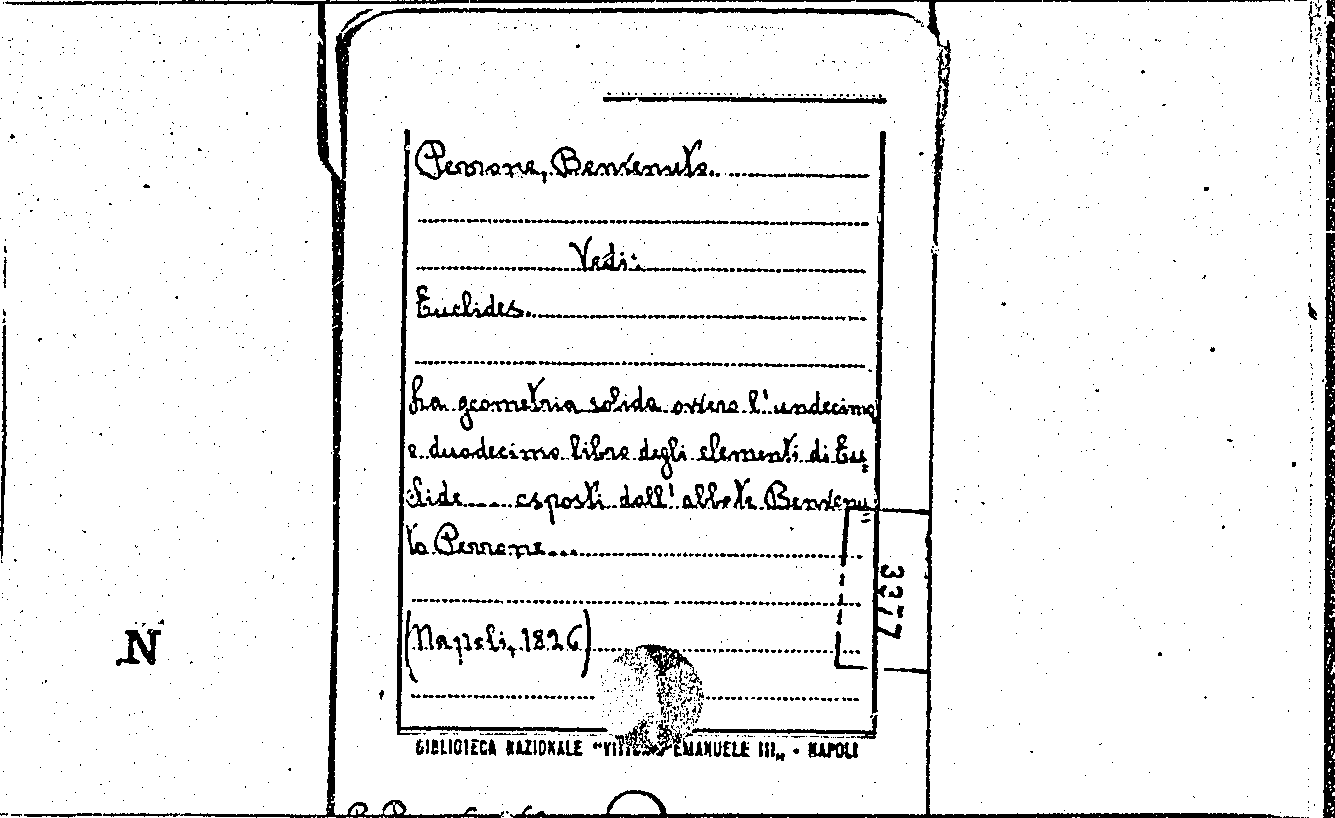 Perrone, Benvenuto.
Vedi:
Euclides.
La geometria solida ovvero l'undecimo
e duodecimo libro degli elementi di Eu=
clide.... esposti dall'abbate Benvenu=
to Perrone...
(Napoli, 1826)
3377
N
BIBLIOTECA NAZIONALE "VITTORIO EMANUELE III„ - NAPOLI